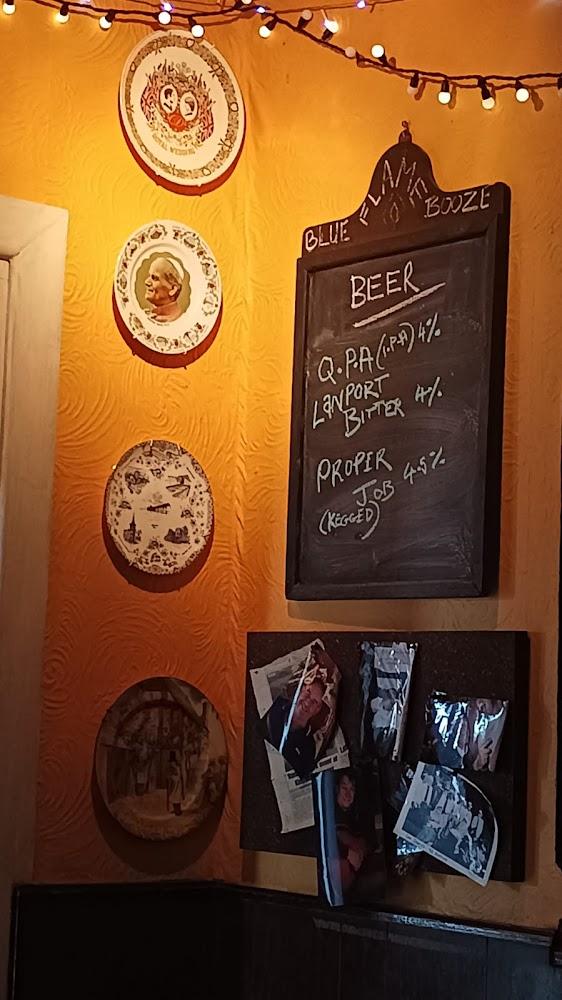 ROYAL WEDDING
BLUE FLAME BOOZE
BEER
Q.P.A (I.P.A) 4%
LANPORT
BITTER 4%
PROPER
JOB 4.5%
(KEGGED)